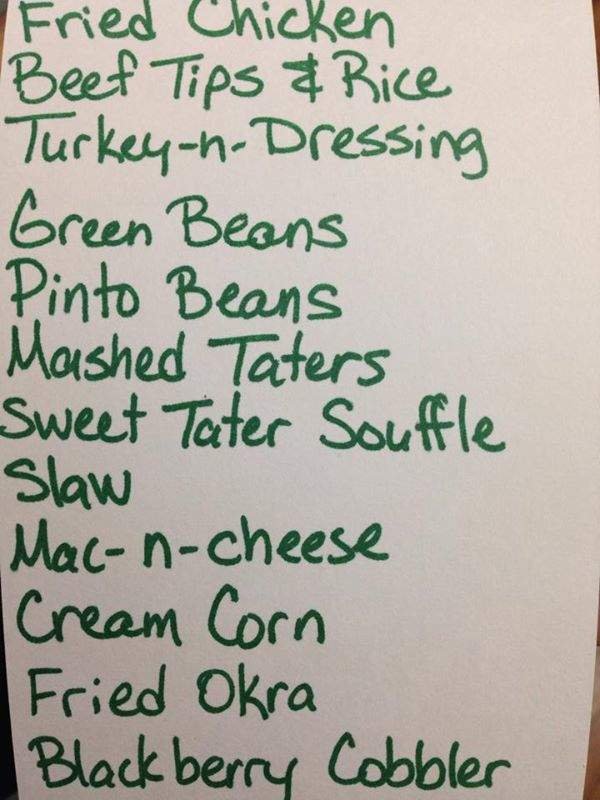 Fried Chicken
Beef Tips & Rice
Turkey-n-Dressing
Green Beans
Pinto Beans
Mashed Taters
Sweet Tater Souffle
Slaw
Mac-n-cheese
Cream Corn
Fried Okra
Blackberry Cobbler